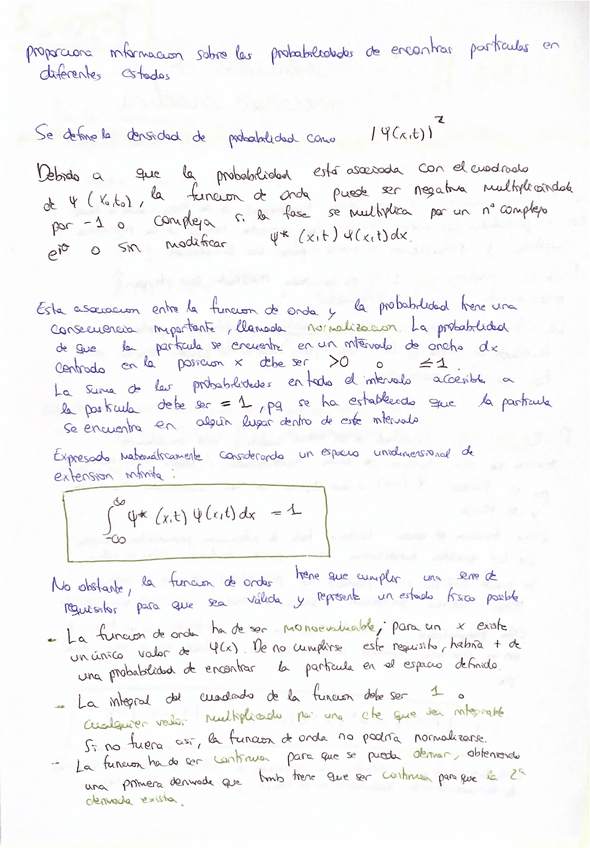 proporciona informacion sobre las probabilidades de encontrar particulas en
diferentes estados
Se define la densidad de probabilidad como |Ψ(x,t)|²
Debido a que la probabilidad está asociada con el cuadrado
de Ψ (x₀,t₀), la funcion de onda puede ser negativa multiplicándola
por -1 o compleja si la fase se multiplica por un nº complejo
e^iθ o sin modificar Ψ* (x,t) Ψ(x,t) dx.
Esta asociacion entre la funcion de onda y la probabilidad tiene una
consecuencia importante, llamada normalizacion. La probabilidad
de que la particula se encuentre en un intervalo de ancho dx
centrado en la posicion x debe ser >0 o ≤1.
La suma de las probabilidades en todo el intervalo accesible a
la particula debe ser = 1, pq se ha establecido que la particula
se encuentra en algún lugar dentro de este intervalo
Expresado matemáticamente considerando un espacio unidimensional de
extension infinita :
∫_{-∞}^{∞} Ψ* (x,t) Ψ(x,t) dx = 1
No obstante, la funcion de ondas tiene que cumplir una serie de
requisitos para que sea válida y represente un estado fisico posible
- La funcion de onda ha de ser monoevaluable; para un x existe
un único valor de Ψ(x). De no cumplirse este requisito, habria + de
una probabilidad de encontrar la particula en el espacio definido.
- La integral del cuadrado de la funcion debe ser 1 o
cualquier valor multiplicado por una cte que sea integrable
Si no fuera asi, la funcion de onda no podria normalizarse.
- La funcion ha de ser continua para que se pueda derivar, obteniendo
una primera derivada que tmb tiene que ser continua para que la 2ª
derivada exista.